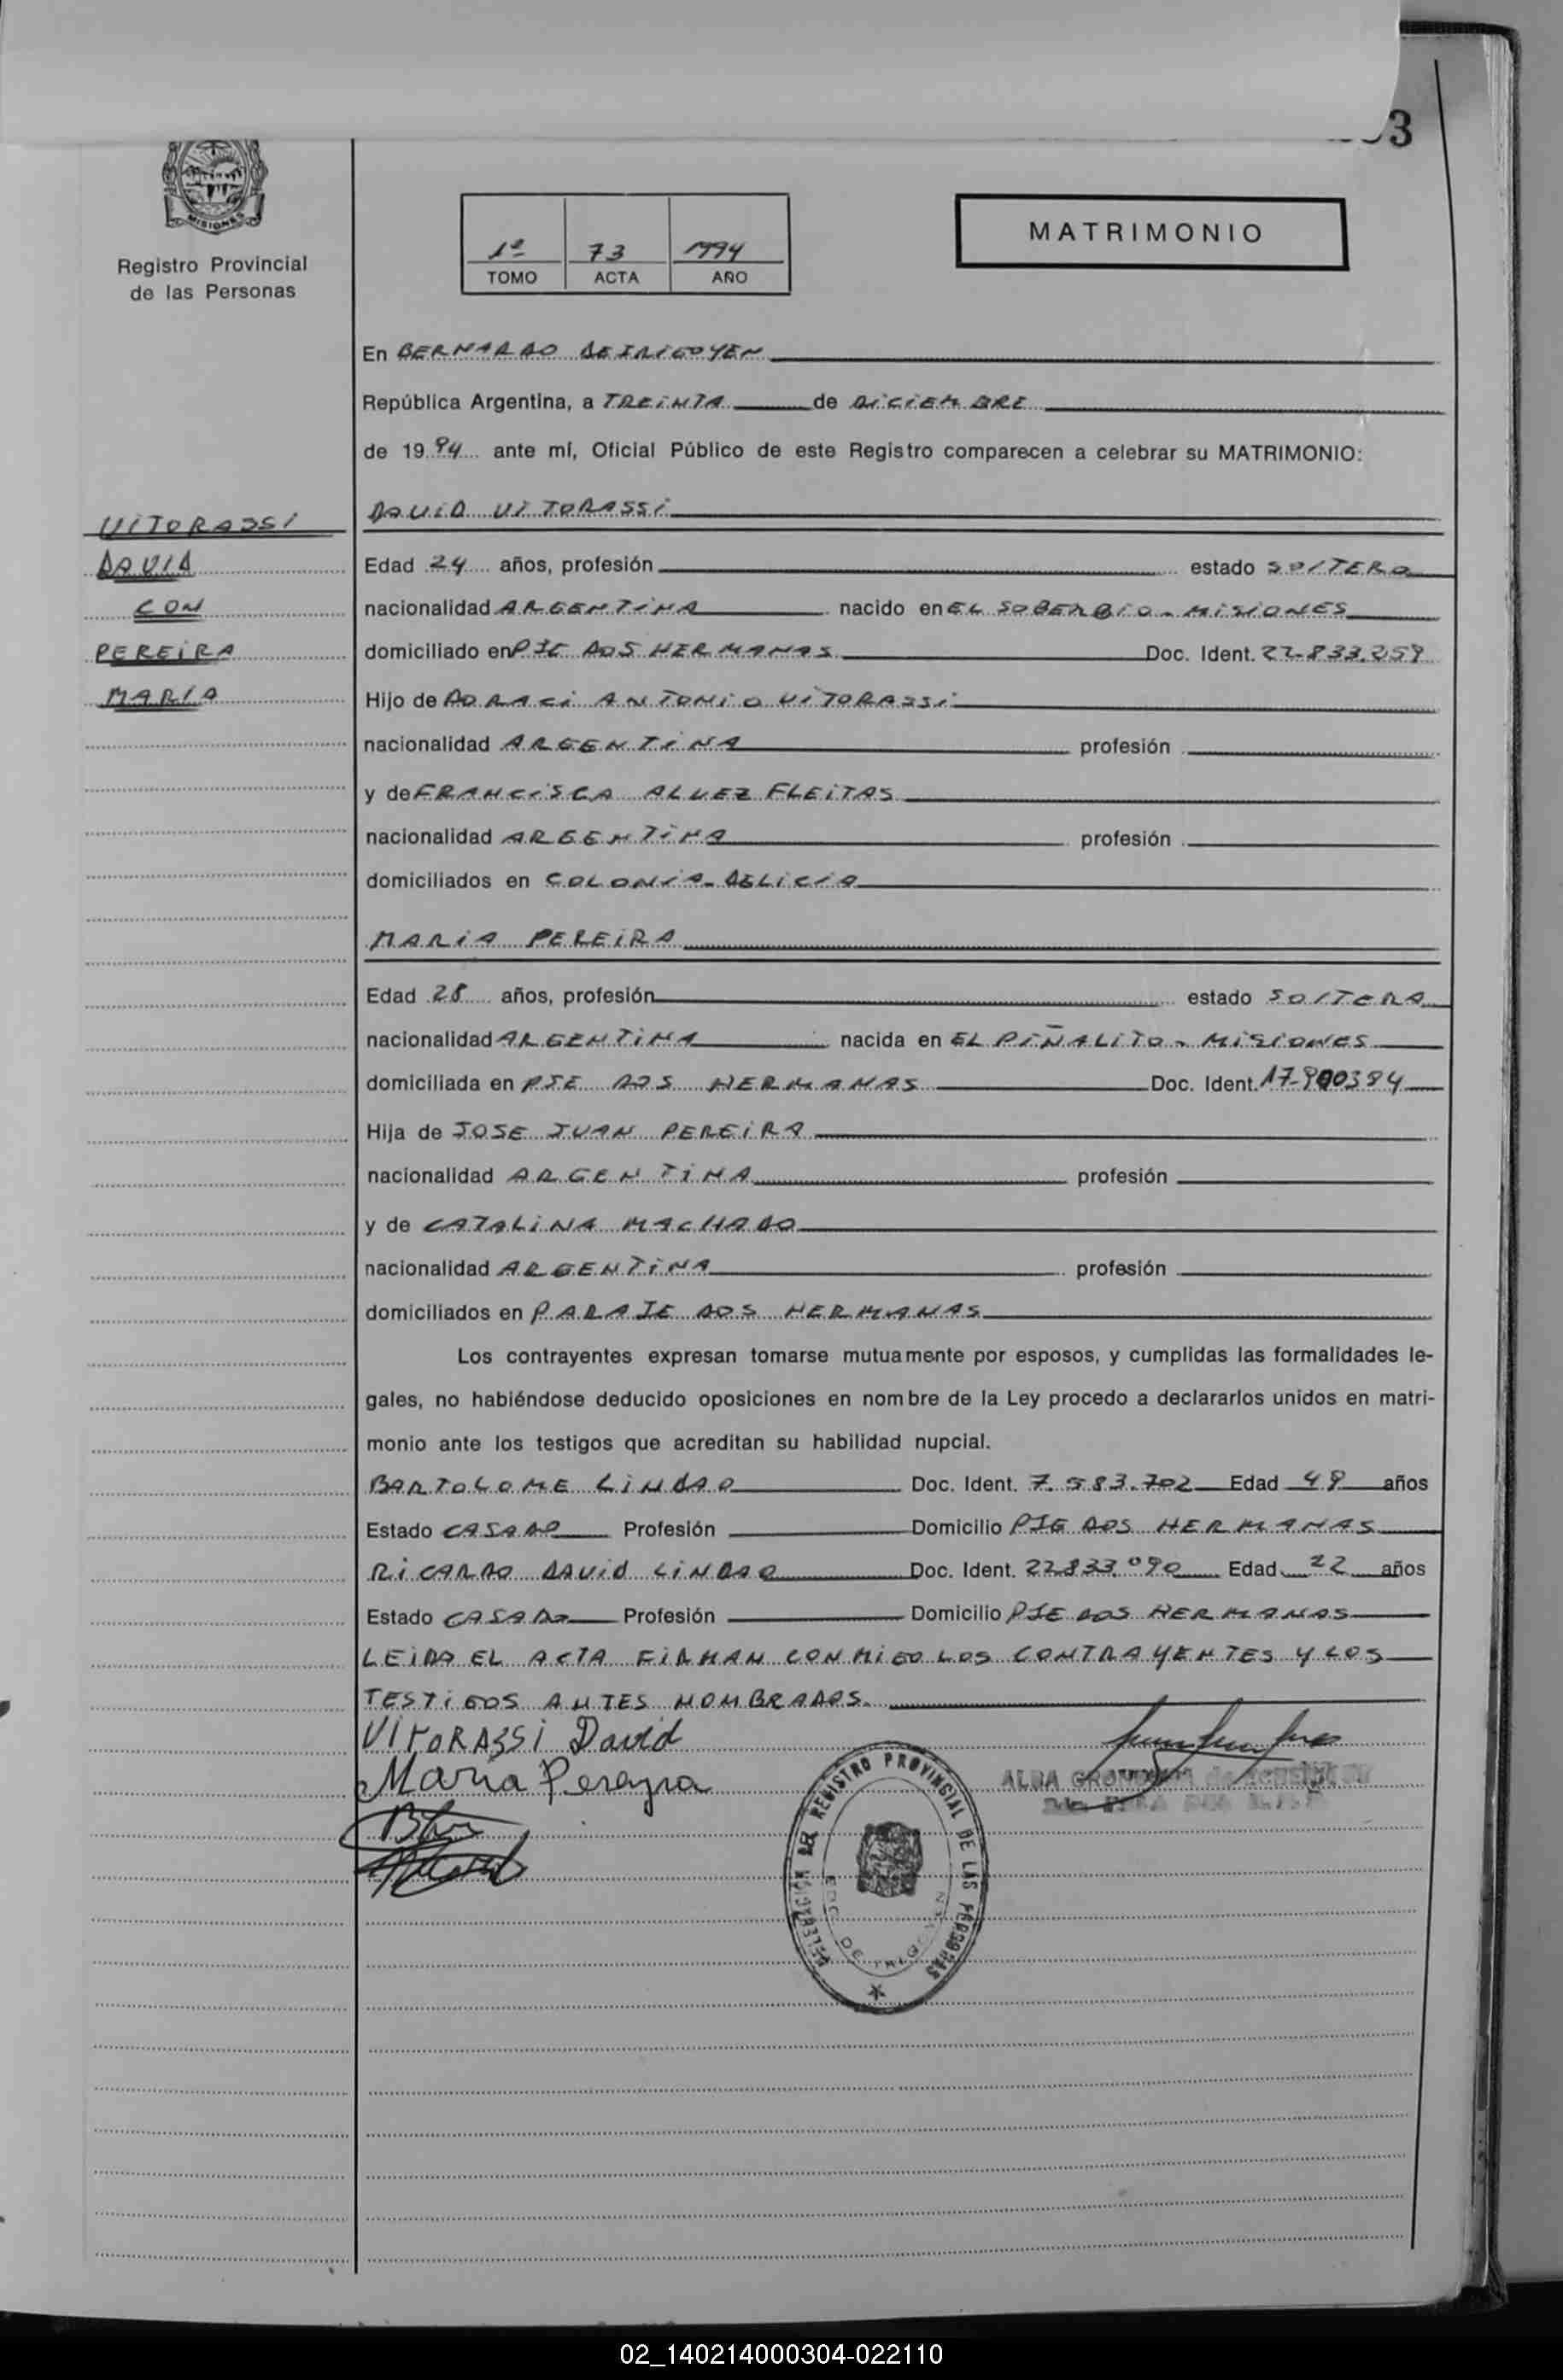 3
MISIONES
Registro Provincial
de las Personas
1º 73 1994
TOMO ACTA AÑO
MATRIMONIO
En BERNARDO DE IRIGOYEN
República Argentina, a TREINTA de DICIEMBRE
de 1994 ante mí, Oficial Público de este Registro comparecen a celebrar su MATRIMONIO:
VITORASSI
DAVID
CON
PEREIRA
MARIA
DAVID VITORASSI
Edad 24 años, profesión estado SOLTERO
nacionalidad ARGENTINA nacido en EL SOBERBIO - MISIONES
domiciliado en PJE DOS HERMANAS Doc. Ident. 22-833.259
Hijo de DORACI ANTONIO VITORASSI
nacionalidad ARGENTINA profesión
y de FRANCISCA ALVEZ FLEITAS
nacionalidad ARGENTINA profesión
domiciliados en COLONIA - DELICIA
MARIA PEREIRA
Edad 28 años, profesión estado SOLTERA
nacionalidad ARGENTINA nacida en EL PIÑALITO - MISIONES
domiciliada en PJE DOS HERMANAS Doc. Ident. 17-900394
Hija de JOSE JUAN PEREIRA
nacionalidad ARGENTINA profesión
y de CATALINA MACHADO
nacionalidad ARGENTINA profesión
domiciliados en PARAJE DOS HERMANAS
Los contrayentes expresan tomarse mutuamente por esposos, y cumplidas las formalidades le-
gales, no habiéndose deducido oposiciones en nombre de la Ley procedo a declararlos unidos en matri-
monio ante los testigos que acreditan su habilidad nupcial.
BARTOLOME LINDAO Doc. Ident. 7.583.702 Edad 49 años
Estado CASADO Profesión Domicilio PJE DOS HERMANAS
RICARDO DAVID LINDAO Doc. Ident. 22833.090 Edad 22 años
Estado CASADO Profesión Domicilio PJE DOS HERMANAS
LEIDA EL ACTA FIRMAN CONMIGO LOS CONTRAYENTES Y LOS
TESTIGOS ANTES NOMBRADOS.
VITORASSI David
Maria Pereyra
ALBA
DELEGACION DEL REGISTRO PROVINCIAL DE LAS PERSONAS
BDO. DE IRIGOYEN
02_140214000304-022110